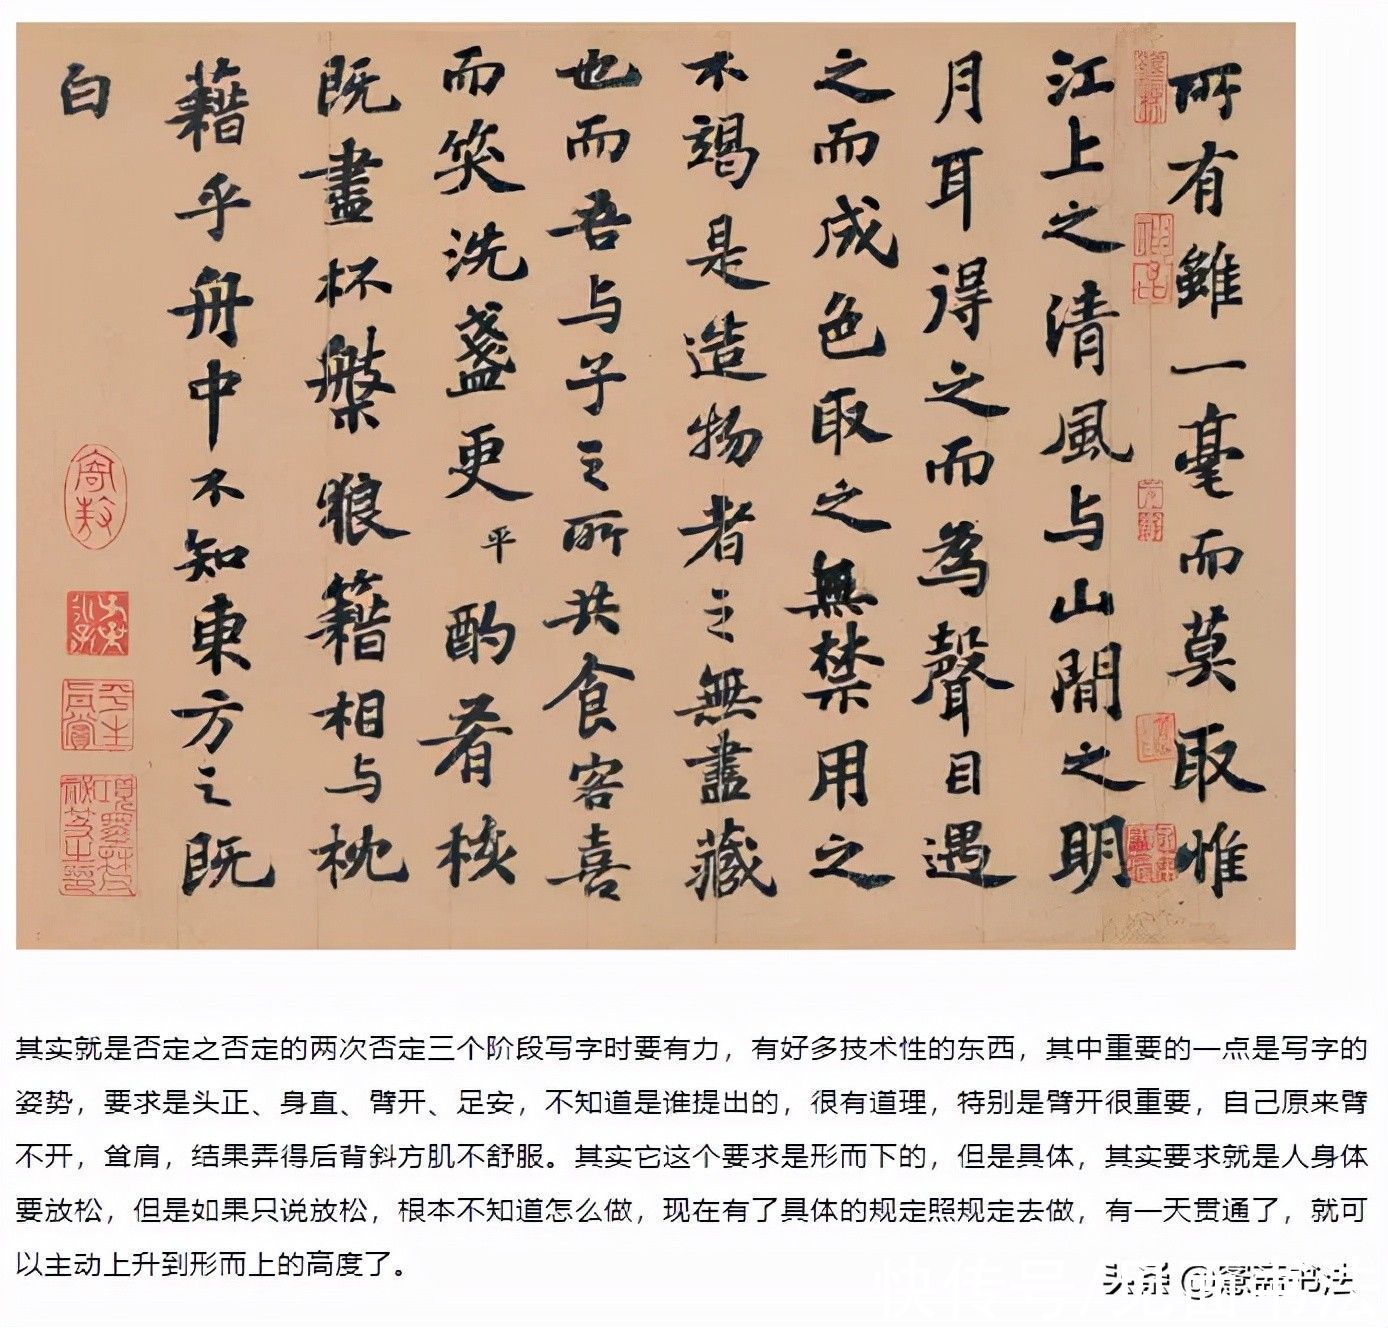 所有雖一毫而莫取惟
江上之清風与山間之明
月耳得之而為聲目遇
之而成色取之無禁用之
不竭是造物者之無盡藏
也而吾与子之所共食客喜
而笑洗盞更平酌肴核
既盡杯槃狼籍相与枕
藉乎舟中不知東方之既
白
其实就是否定之否定的两次否定三个阶段写字时要有力，有好多技术性的东西，其中重要的一点是写字的
姿势，要求是头正、身直、臂开、足安，不知道是谁提出的，很有道理，特别是臂开很重要，自己原来臂
不开，耸肩，结果弄得后背斜方肌不舒服。其实它这个要求是形而下的，但是具体，其实要求就是人身体
要放松，但是如果只说放松，根本不知道怎么做，现在有了具体的规定照规定去做，有一天贯通了，就可
以主动上升到形而上的高度了。